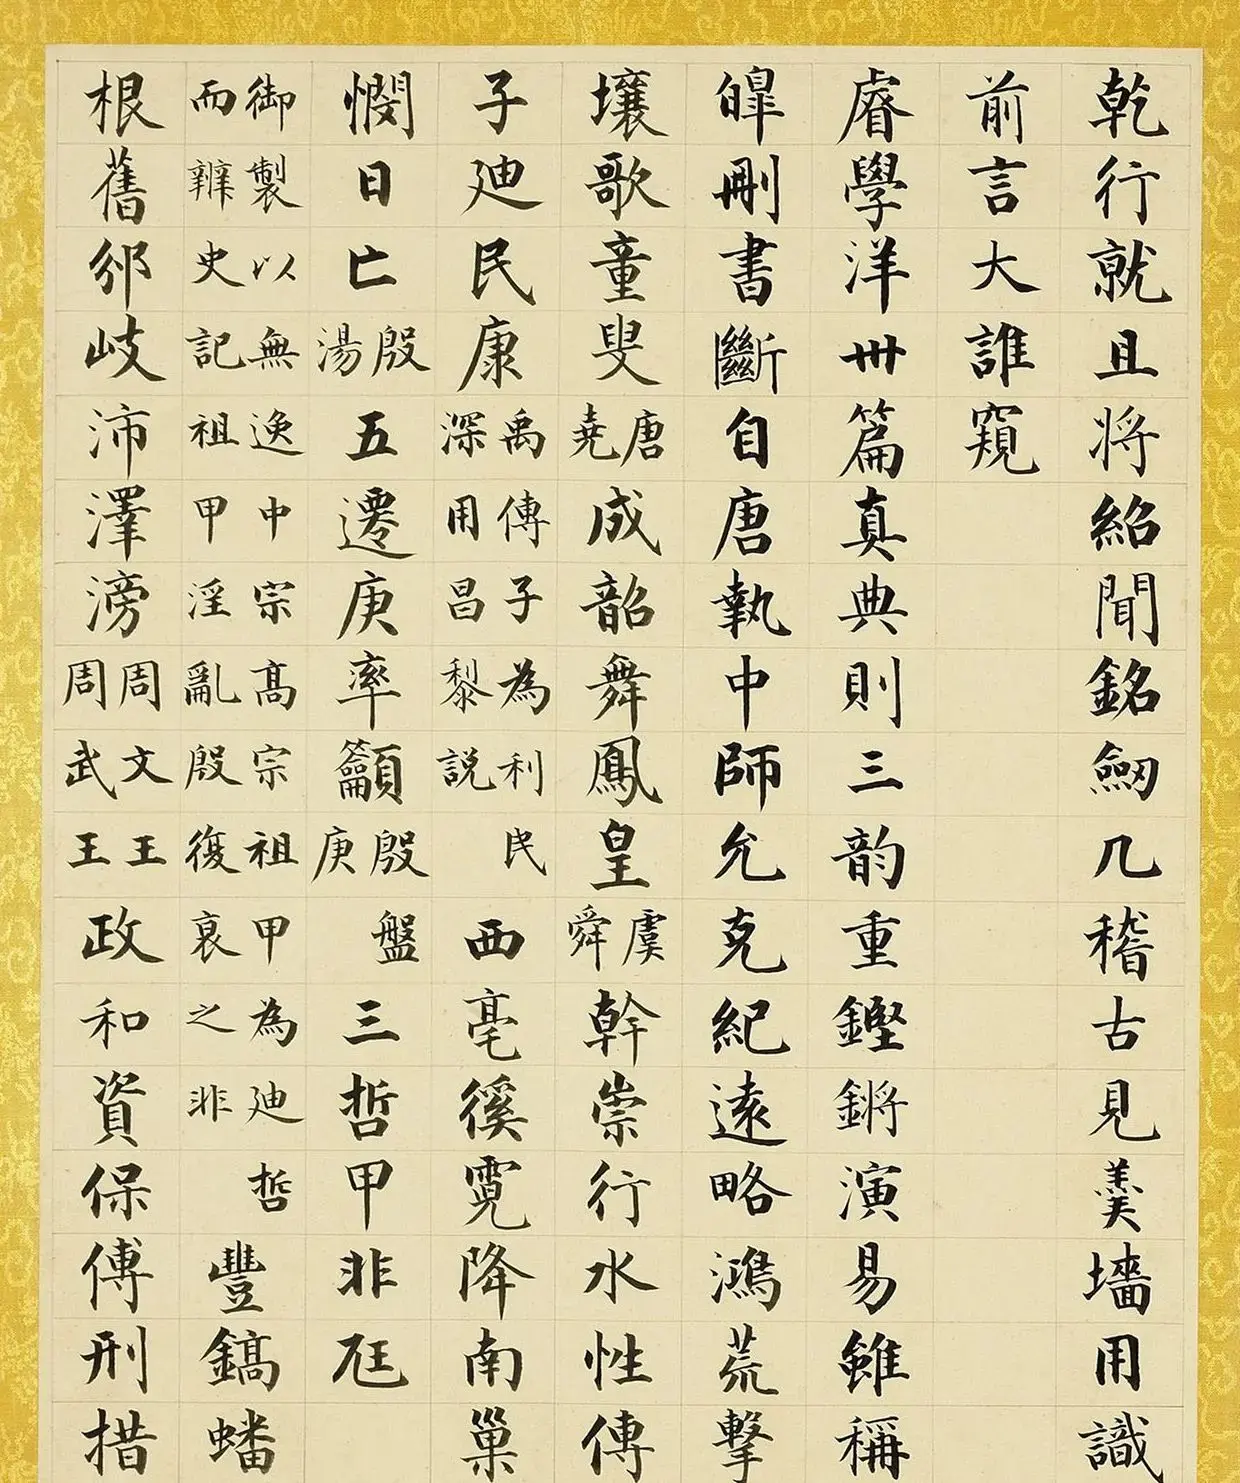 乾行就且將紹聞銘劒几稽古見羹墻用識
前言大誰窺
睿學洋卌篇真典則三韵重鏗鏘演易雖稱
皥刪書斷自唐執中師允克紀遠略鴻荒擊
壤歌童叟
唐堯
成韶舞鳳皇
虞舜
幹崇行水性傳
子迪民康
禹傳子為利民
深用昌黎説
西亳徯霓降南巢
憫日亡
殷湯
五遷庚率籲
殷盤
庚
三哲甲非尫
御製以無逸中宗高宗祖甲為迪哲
而辨史記祖甲淫亂殷復衰之非
豐鎬蟠
根舊邠岐沛澤滂
周文王
周武王
政和資保傅刑措